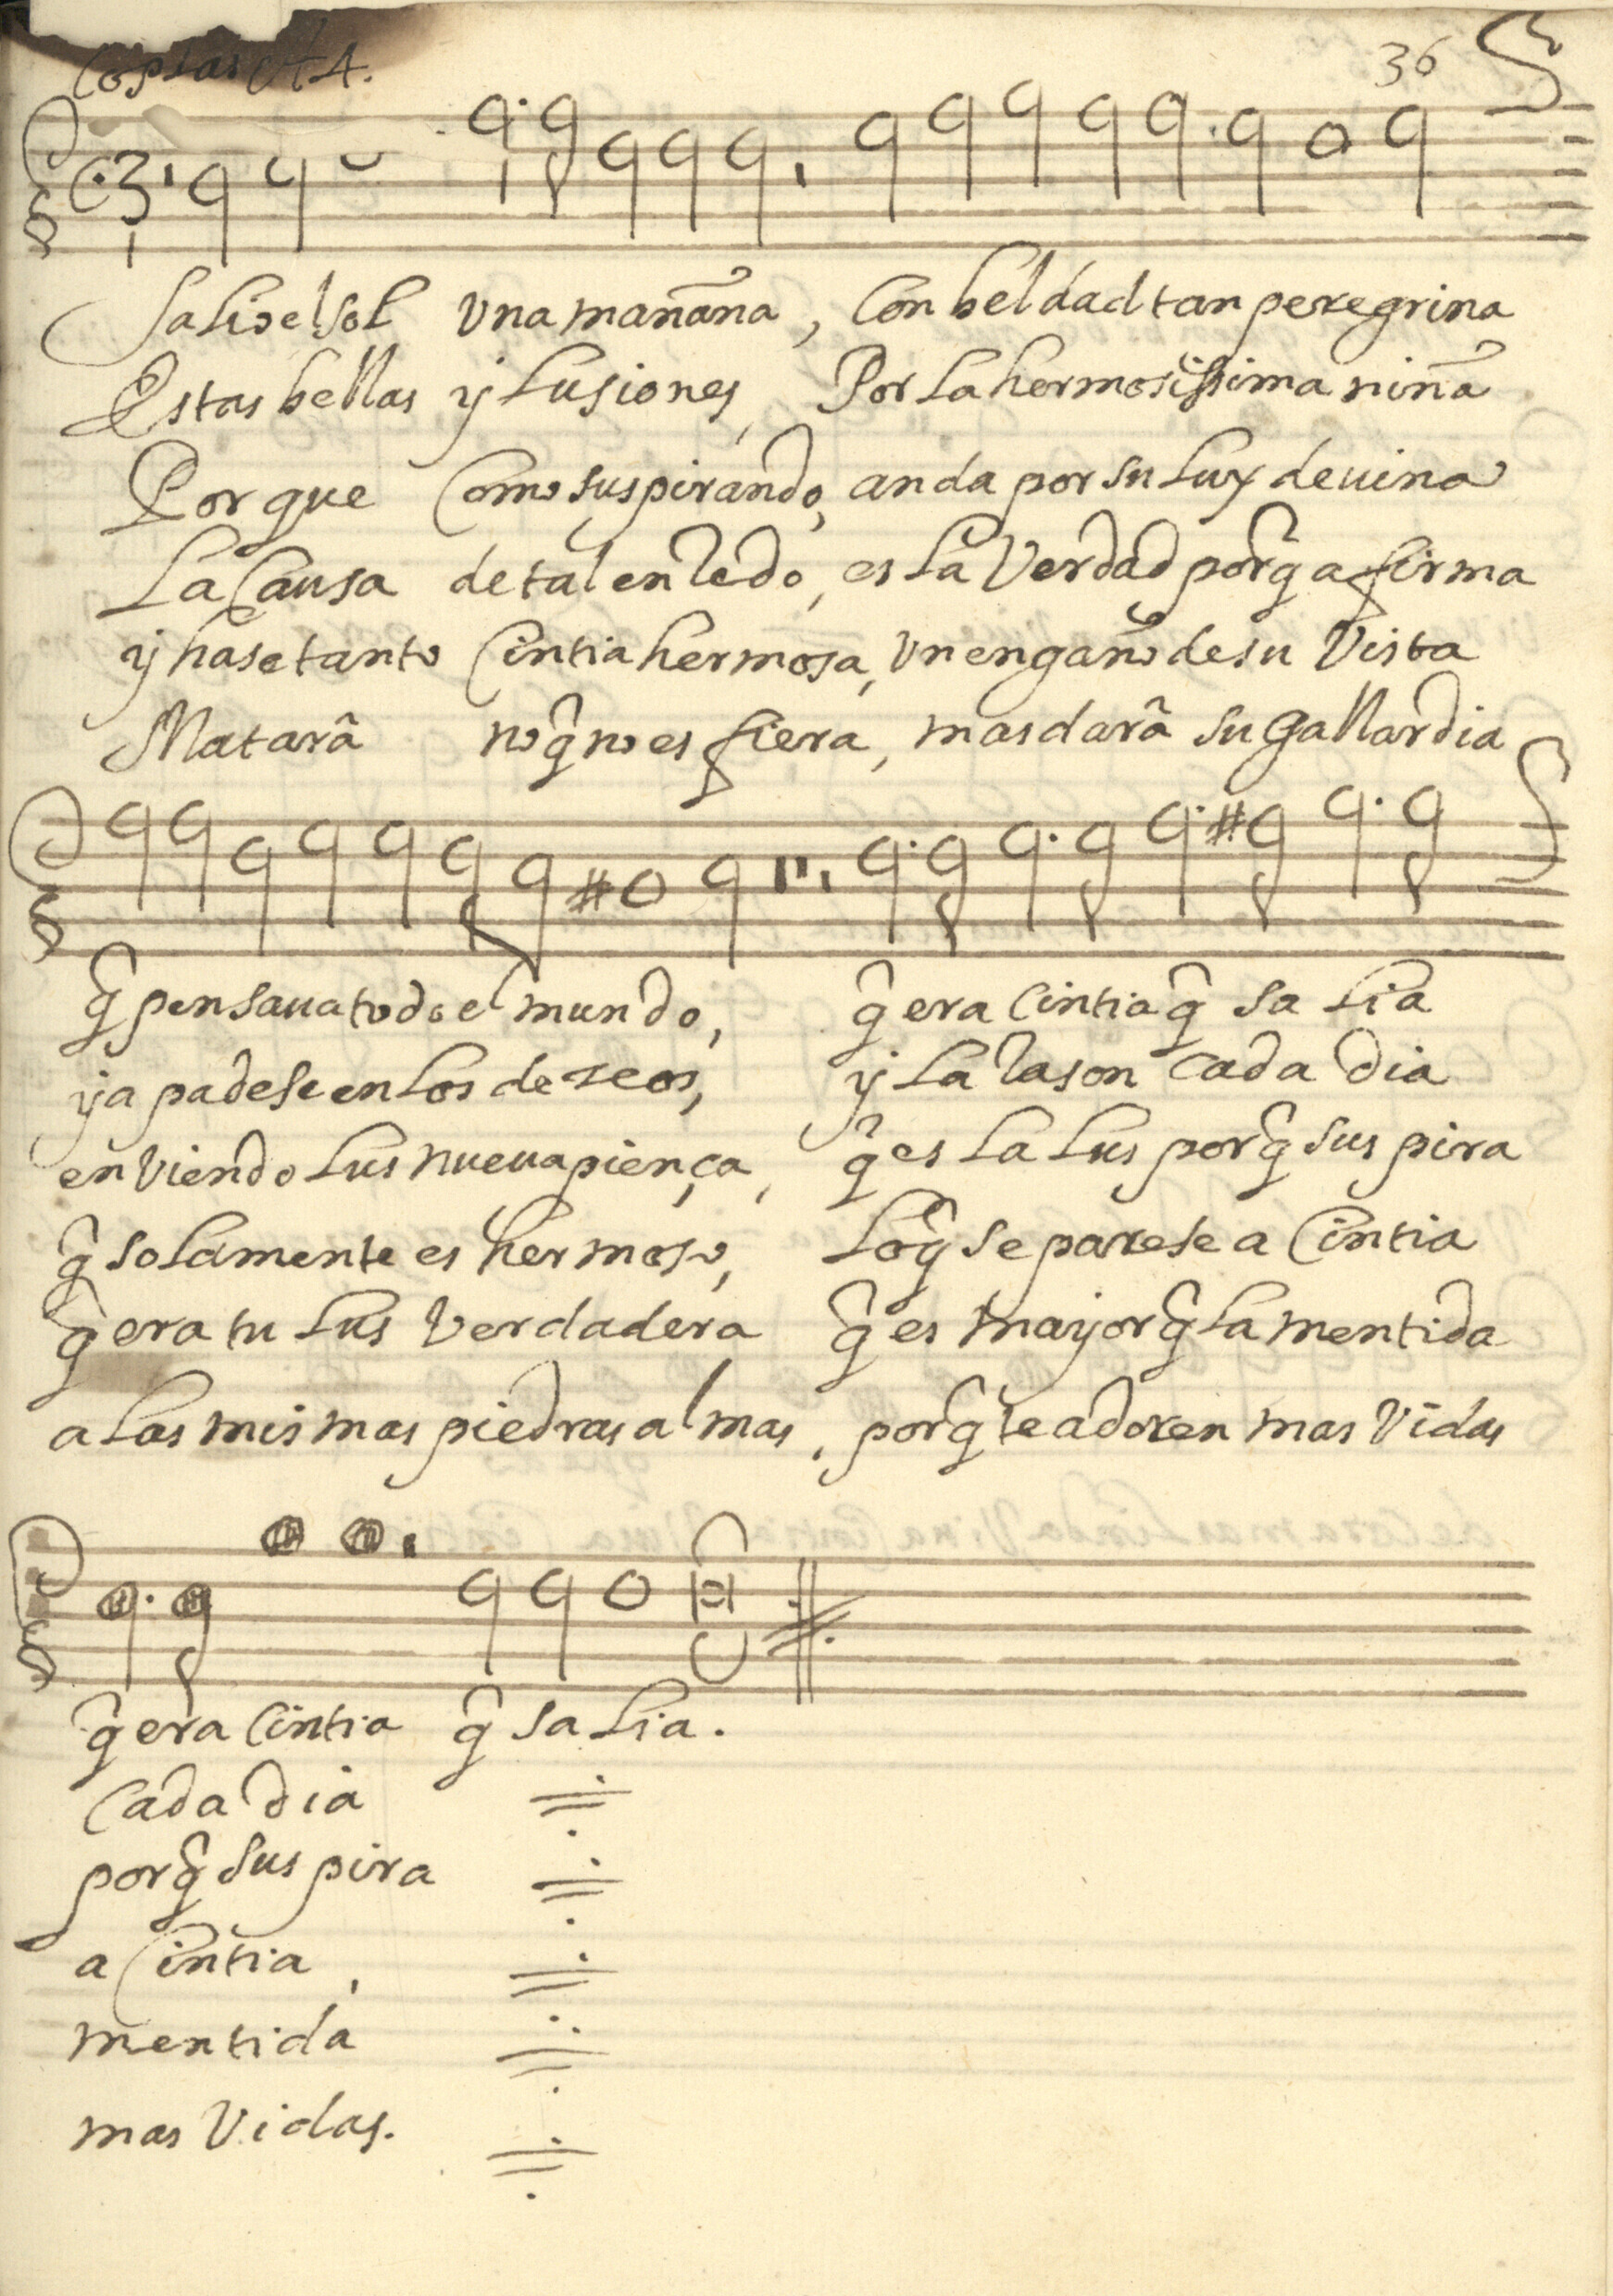 Coplas A 4.
36
Salio el sol Vna mañana, Con beldad tan peregrina
Estas bellas ylusiones, Por La hermosissima niña
Por que Como suspirando, anda por su Lux deuina
La Causa de tal enredo, es La Verdad porq̃ afirma
y hase tanto Cintia hermosa, Vn engaño de su Vista
Matarâ no q̃ no es fiera, mas darâ su gallardia
q̃ pensaua todo el mundo, q̃ era Cintia q̃ salia
ya padese en Los dezeos, y La rason cada dia
en Viendo Lus nueua piença, q̃ es La Lus porq̃ suspira
q̃ solamente es hermoso, Loq̃ se parese a Cintia
q̃ era tu Lus Verdadera q̃ es mayor q̃ La mentida
a Las mismas piedras almas, porq̃ te adoren mas Vidas
q̃ era Cintia q̃ salia.
Cada dia
porq̃ suspira
a Cintia,
mentida
mas Vidas.